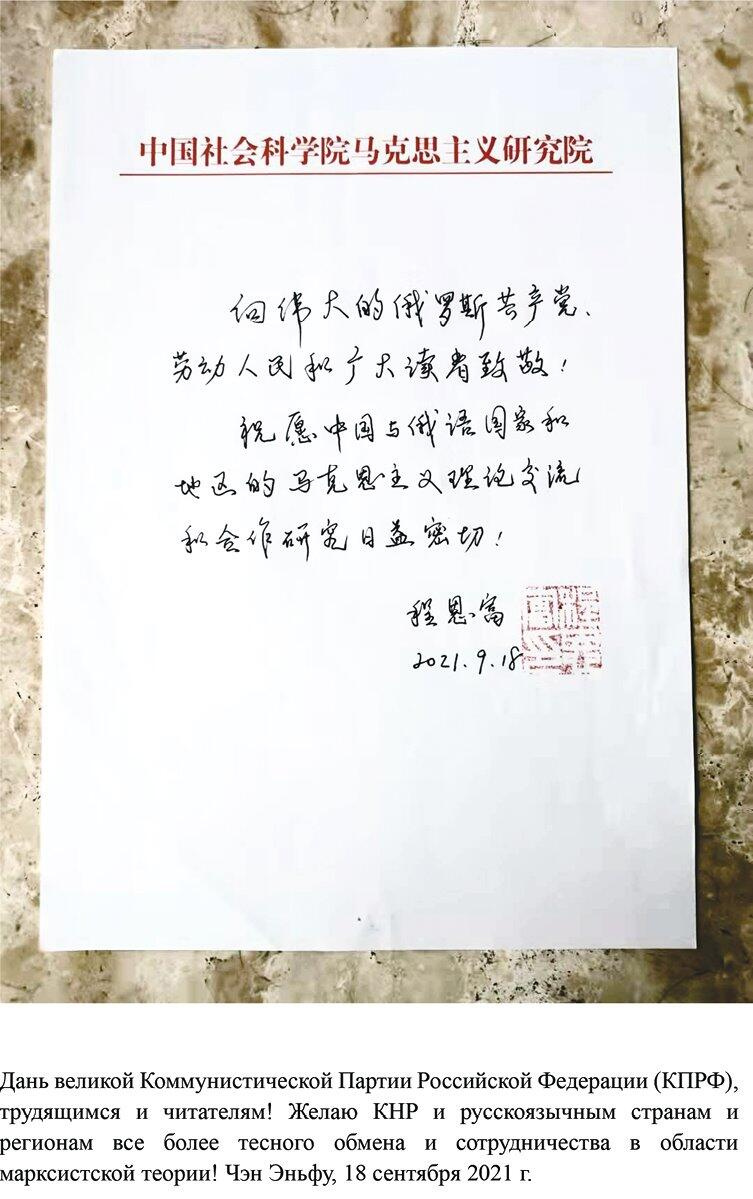 中国社会科学院马克思主义研究院
向伟大的俄罗斯共产党、
劳动人民和广大读者致敬！
祝愿中国与俄语国家和
地区的马克思主义理论交流
和合作研究日益密切！
程恩富
2021.9.18
Дань великой Коммунистической Партии Российской Федерации (КПРФ),
трудящимся и читателям! Желаю КНР и русскоязычным странам и
регионам все более тесного обмена и сотрудничества в области
марксистской теории! Чэн Эньфу, 18 сентября 2021 г.